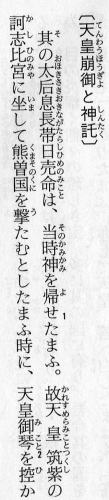 〔天皇崩御と神託〕
其の太后息長帯日売命は、当時神を帰せたまふ。故天皇筑紫の
訶志比宮に坐して熊曽国を撃たむとしたまふ時に、天皇御琴を控か